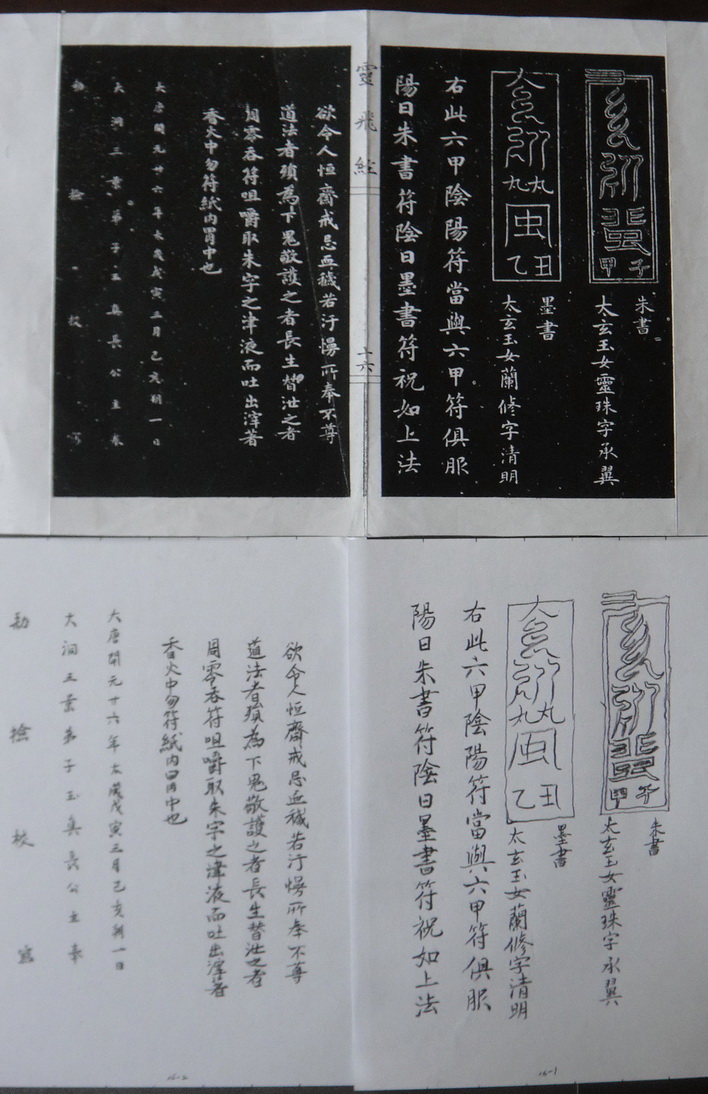 子
甲
朱書
太玄玉女靈珠字承翼
丸丸
虫
丑
乙
墨書
太玄玉女蘭修字清明
右此六甲陰陽符當與六甲符俱服
陽日朱書符陰日墨書符祝如上法
靈飛經
十六
欲令人恒齋戒忌血穢若汙慢所奉不尊
道法者須為下鬼敬護之者長生替泄之者
周零吞符咀嚼取朱字之津液而吐出滓著
香火中勿符紙內胃中也
大唐開元廿六年太歲戊寅三月己亥朔一日
大洞三景弟子玉真長公主奉
勑檢校寫
子
甲
朱書
太玄玉女靈珠字承翼
丸丸
虫
丑
乙
墨書
太玄玉女蘭修字清明
右此六甲陰陽符當與六甲符俱服
陽日朱書符陰日墨書符祝如上法
欲令人恒齋戒忌血穢若汙慢所奉不尊
道法者須為下鬼敬護之者長生替泄之者
周零吞符咀嚼取朱字之津液而吐出滓著
香火中勿符紙內胃中也
大唐開元廿六年太歲戊寅三月己亥朔一日
大洞三景弟子玉真長公主奉
勑檢校寫
16-1
16-2